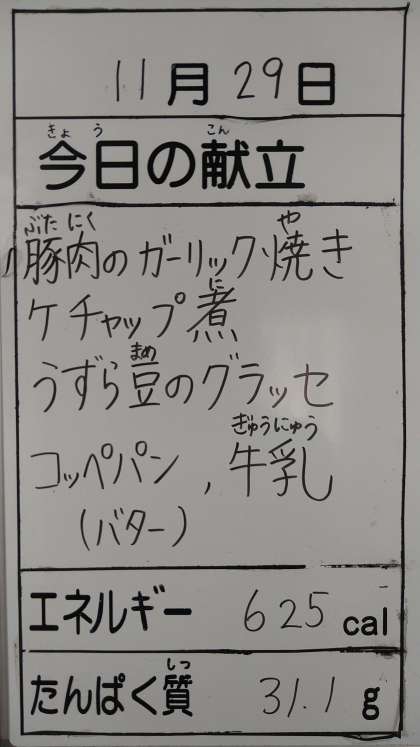 11月29日
きょう こん
今日の献立
ぶたにく や
豚肉のガーリック焼き
に
ケチャップ煮
まめ
うずら豆のグラッセ
ぎゅうにゅう
コッペパン,牛乳
(バター)
エネルギー 625 cal
しつ
たんぱく質 31.1 g